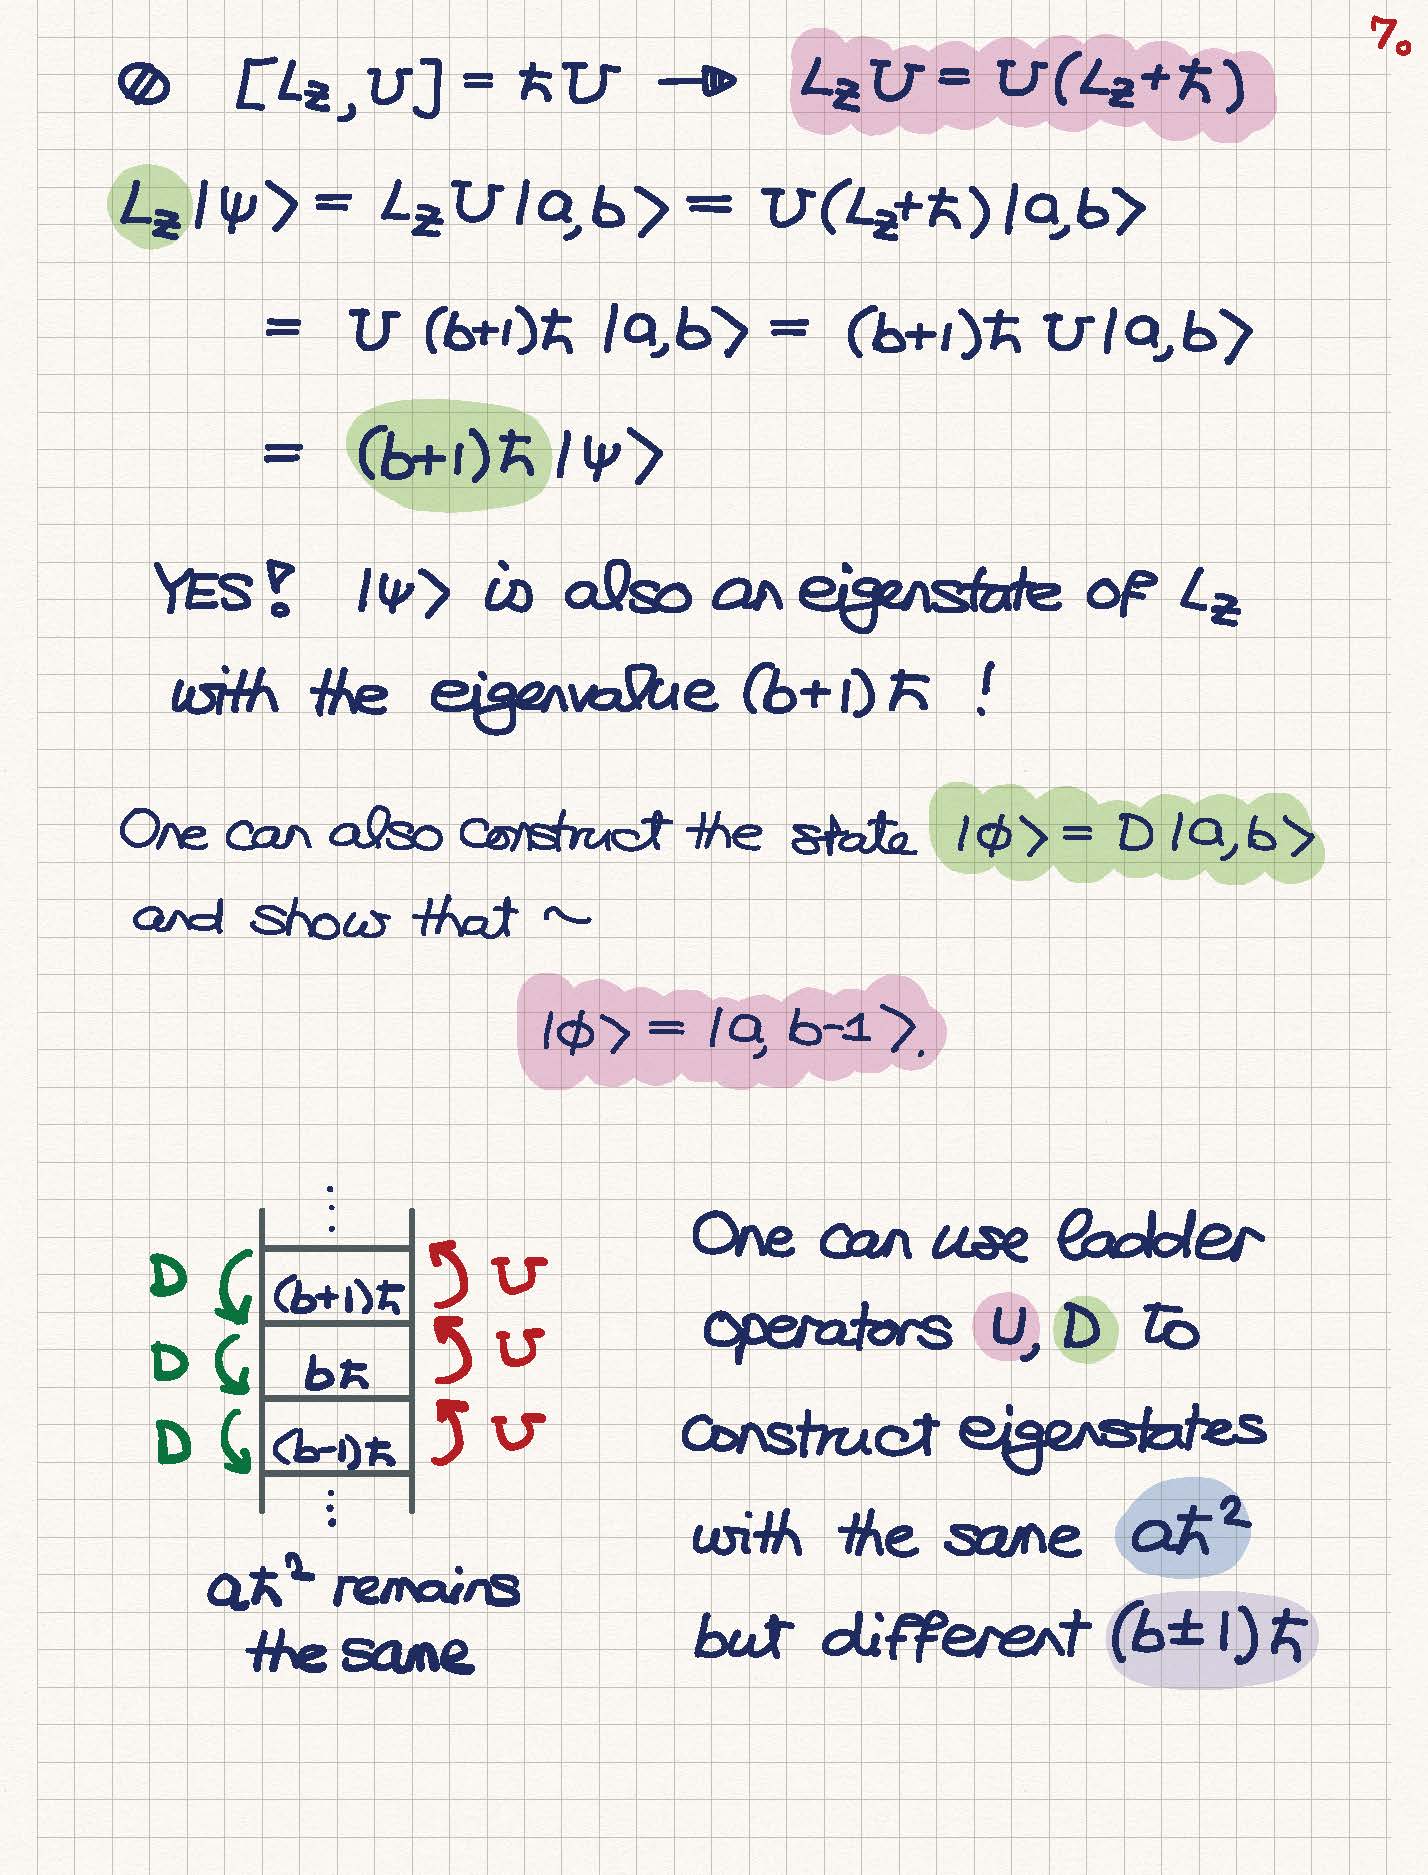 7.
[Lz, U] = ħU → LzU = U(Lz+ħ)
Lz|ψ⟩ = LzU|a,b⟩ = U(Lz+ħ)|a,b⟩
= U (b+1)ħ |a,b⟩ = (b+1)ħ U|a,b⟩
= (b+1)ħ |ψ⟩
YES! |ψ⟩ is also an eigenstate of Lz
with the eigenvalue (b+1)ħ !
One can also construct the state |φ⟩ = D|a,b⟩
and show that ~
|φ⟩ = |a, b-1⟩.
⋮
D (b+1)ħ U
D bħ U
D (b-1)ħ U
⋮
aħ² remains
the same
One can use ladder
operators U, D to
construct eigenstates
with the same aħ²
but different (b±1)ħ